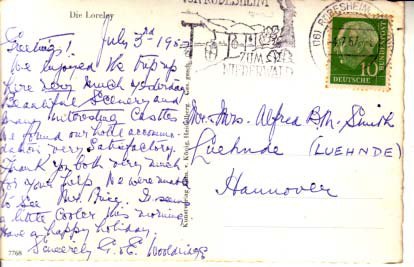 Die Loreley
July 3rd
Greetings!
We enjoyed the trip up
here very much yesterday
Beautiful Scenery and
many interesting Castles
We found our hotel accomm-
dation very satisfactory.
Thank you both very much
for your help. We were unable
to see Mrs. It seems
a little cooler this morning
Have a happy holiday.
Sincerely G. & E. Wooldridge
Mr. & Mrs. Alfred B. M. Smith
Luehnde (LUEHNDE)
Hannover
VON RÜDESHEIM
ZUM
NIEDERWALD
DEUTSCHE BUNDESPOST
10
7768